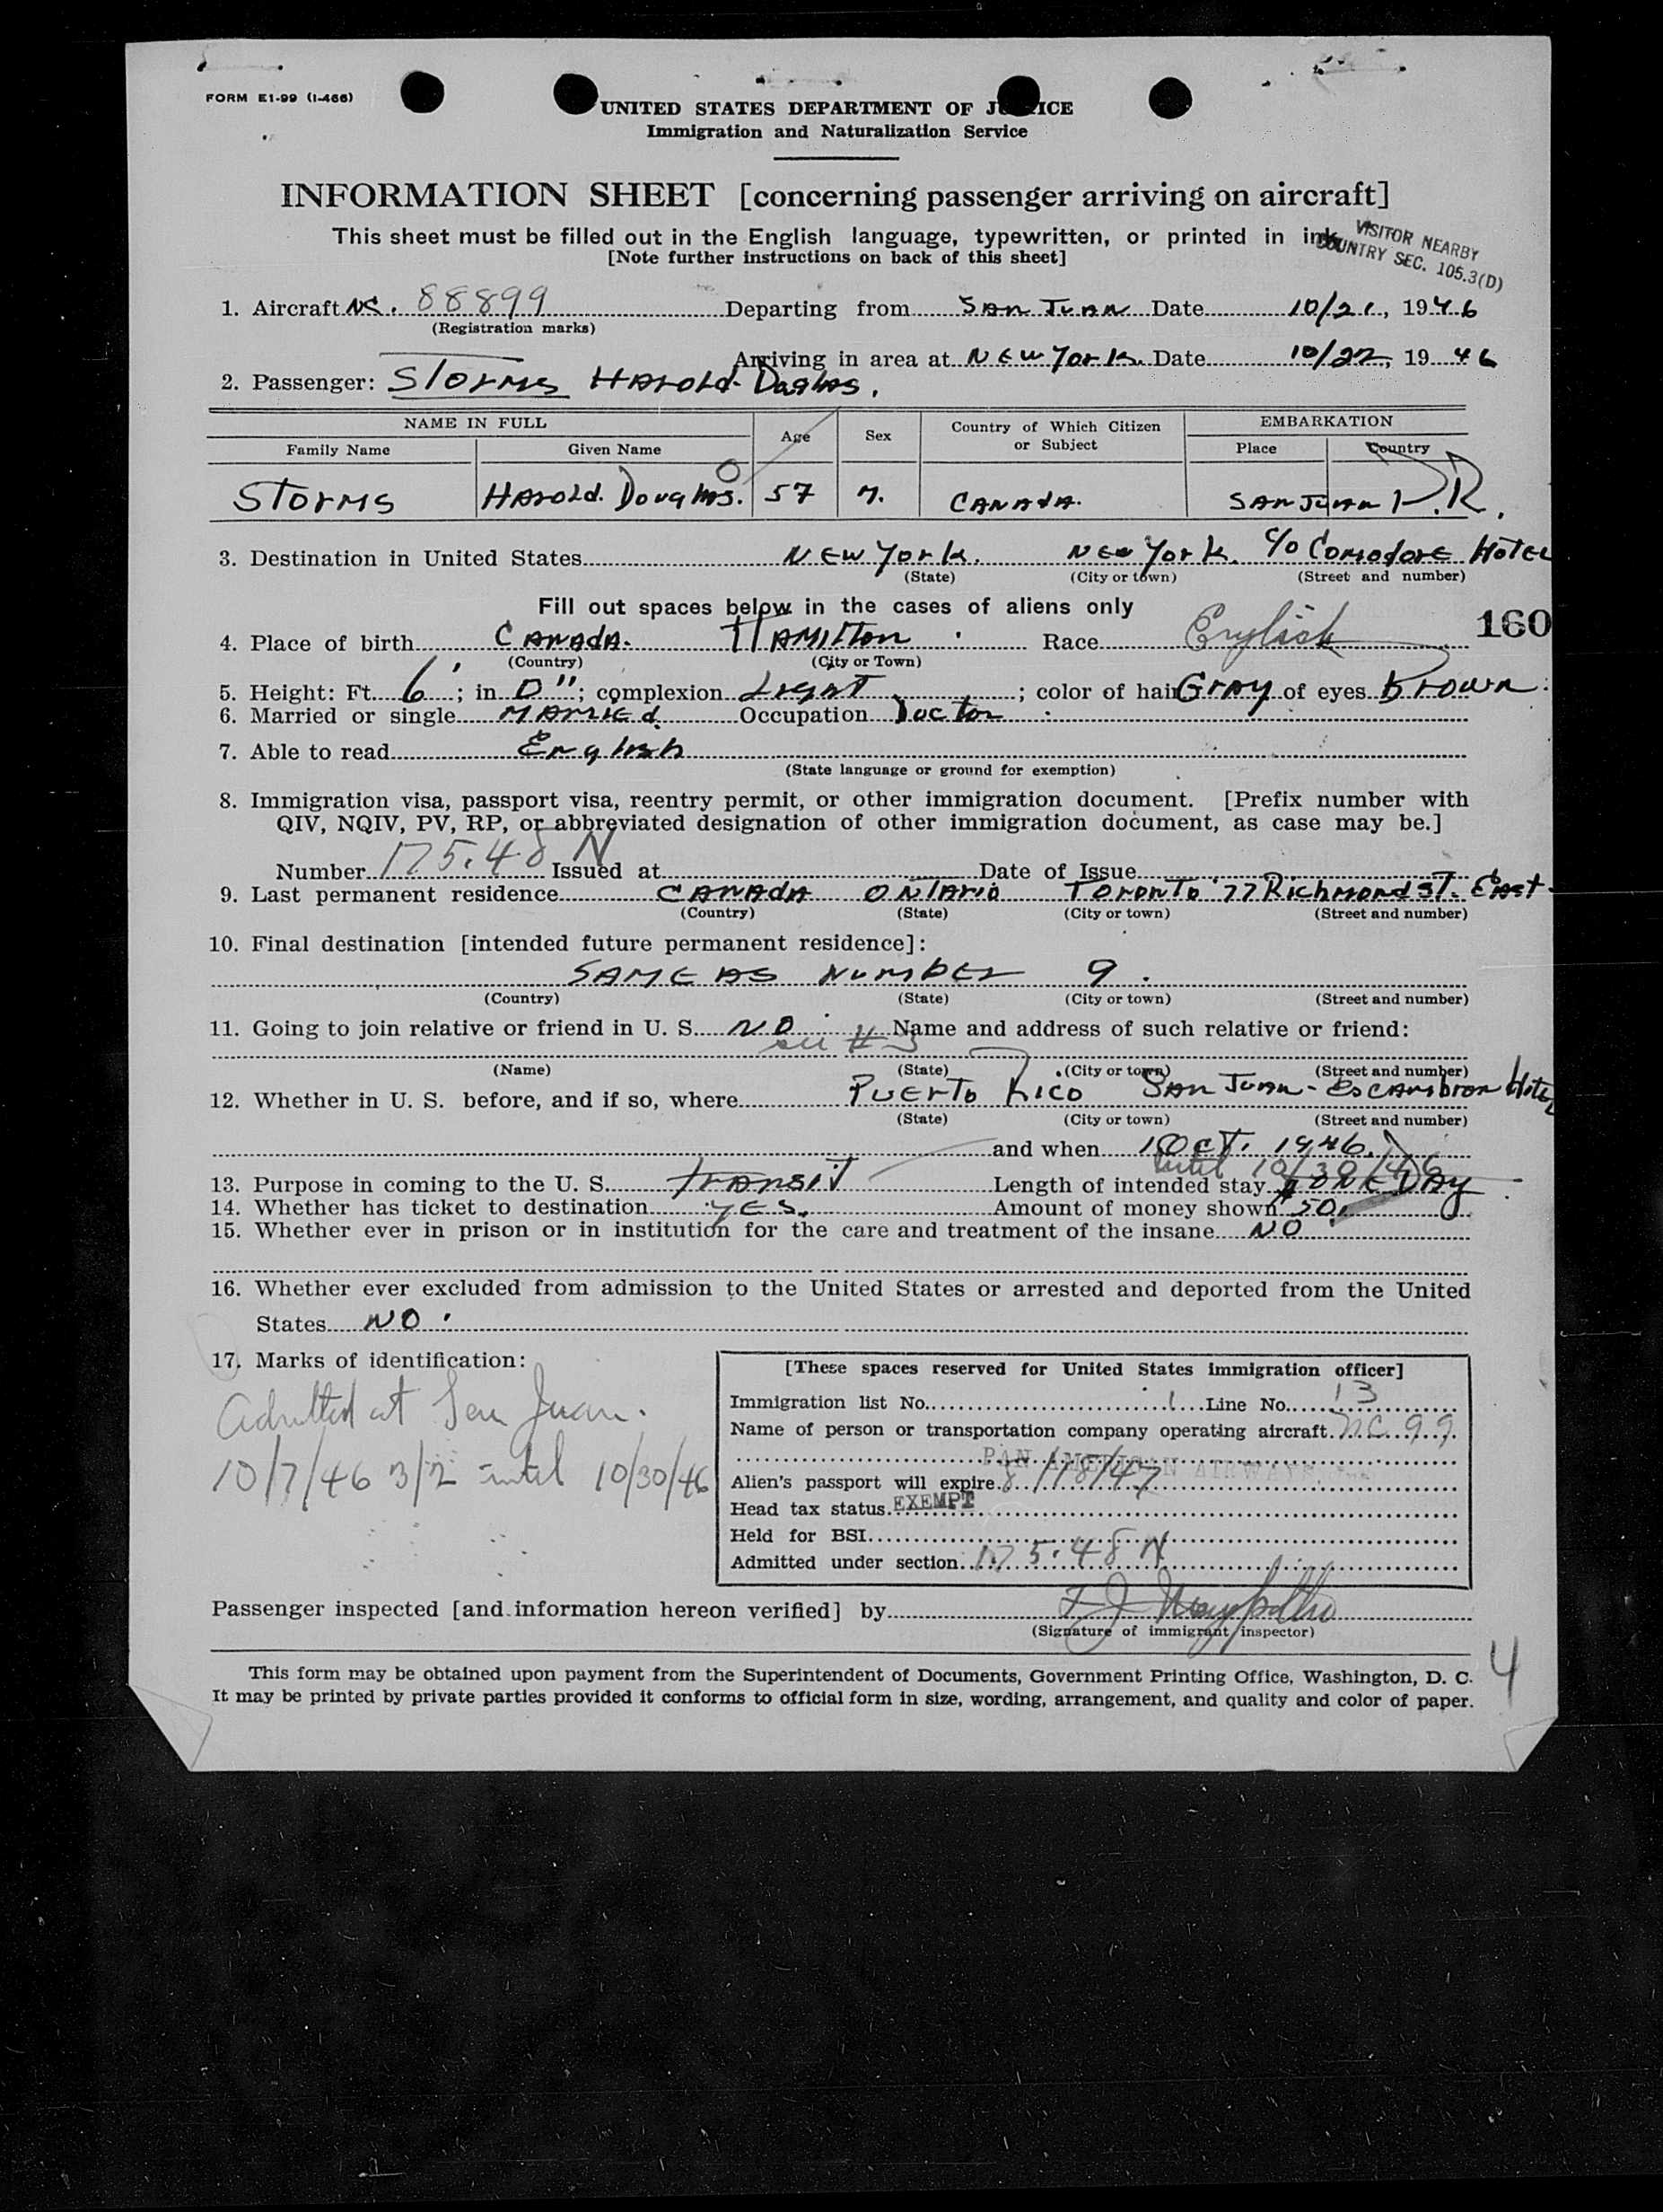 FORM E1-99 (I-466)
UNITED STATES DEPARTMENT OF JUSTICE
Immigration and Naturalization Service
INFORMATION SHEET [concerning passenger arriving on aircraft]
This sheet must be filled out in the English language, typewritten, or printed in ink.
[Note further instructions on back of this sheet]
VISITOR NEARBY
COUNTRY SEC. 105.3(D)
1. Aircraft NC. 88899 Departing from SAN JUAN Date 10/21, 1946
(Registration marks)
Arriving in area at NEW York. Date 10/22, 1946
2. Passenger: STORMS HAROLD Douglas.
NAME IN FULL Age Sex Country of Which Citizen or Subject EMBARKATION
Family Name Given Name Place Country
STORMS HAROLD. Douglas. 57 M. CANADA. SAN JUAN P.R.
3. Destination in United States NEW York. NEW York. c/o Comodore HOTEL
(State) (City or town) (Street and number)
Fill out spaces below in the cases of aliens only
160
4. Place of birth CANADA. HAMILTON Race English
(Country) (City or Town)
5. Height: Ft. 6'; in 0"; complexion LIGHT; color of hair GRAY of eyes BROWN.
6. Married or single MARRIED Occupation Doctor
7. Able to read English
(State language or ground for exemption)
8. Immigration visa, passport visa, reentry permit, or other immigration document. [Prefix number with
QIV, NQIV, PV, RP, or abbreviated designation of other immigration document, as case may be.]
Number 175.48 N Issued at Date of Issue
9. Last permanent residence CANADA ONTARIO TORONTO 77 Richmond ST. East
(Country) (State) (City or town) (Street and number)
10. Final destination [intended future permanent residence]:
SAME AS NUMBER 9.
(Country) (State) (City or town) (Street and number)
11. Going to join relative or friend in U. S. NO Name and address of such relative or friend:
see # 3
(Name) (State) (City or town) (Street and number)
12. Whether in U. S. before, and if so, where PUERTO RICO SAN JUAN - Escambron Hotel
(State) (City or town) (Street and number)
and when OCT. 1946.
until 10/30/46
13. Purpose in coming to the U. S. TRANSIT Length of intended stay ONE DAY
14. Whether has ticket to destination YES. Amount of money shown 50.
15. Whether ever in prison or in institution for the care and treatment of the insane NO
16. Whether ever excluded from admission to the United States or arrested and deported from the United
States NO.
17. Marks of identification:
Admitted at San Juan.
10/7/46 3/2 until 10/30/46
[These spaces reserved for United States immigration officer]
Immigration list No. 1 Line No. 13
Name of person or transportation company operating aircraft. N.C. 99
PAN AMERICAN AIRWAYS
Alien's passport will expire 8/18/47
Head tax status. EXEMPT
Held for BSI
Admitted under section 175.48 N
Passenger inspected [and information hereon verified] by
(Signature of immigrant inspector)
This form may be obtained upon payment from the Superintendent of Documents, Government Printing Office, Washington, D. C.
It may be printed by private parties provided it conforms to official form in size, wording, arrangement, and quality and color of paper.
4